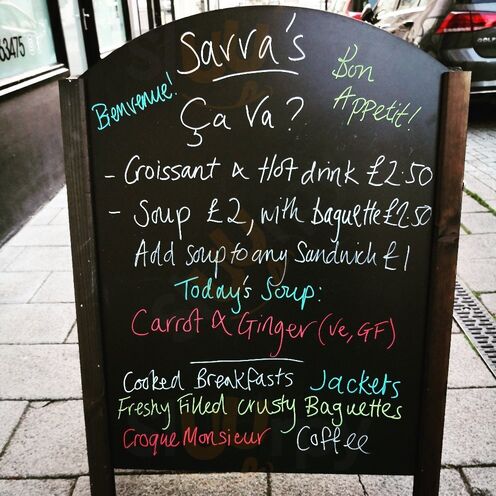 63475
Savva's
Bienvenue!
Bon
Appetit!
Ça Va?
- Croissant & Hot drink £2.50
- Soup £2, with baguette £2.50
Add soup to any Sandwich £1
Today's Soup:
Carrot & Ginger (ve, GF)
Cooked Breakfasts Jackets
Freshy Filled Crusty Baguettes
Croque Monsieur Coffee